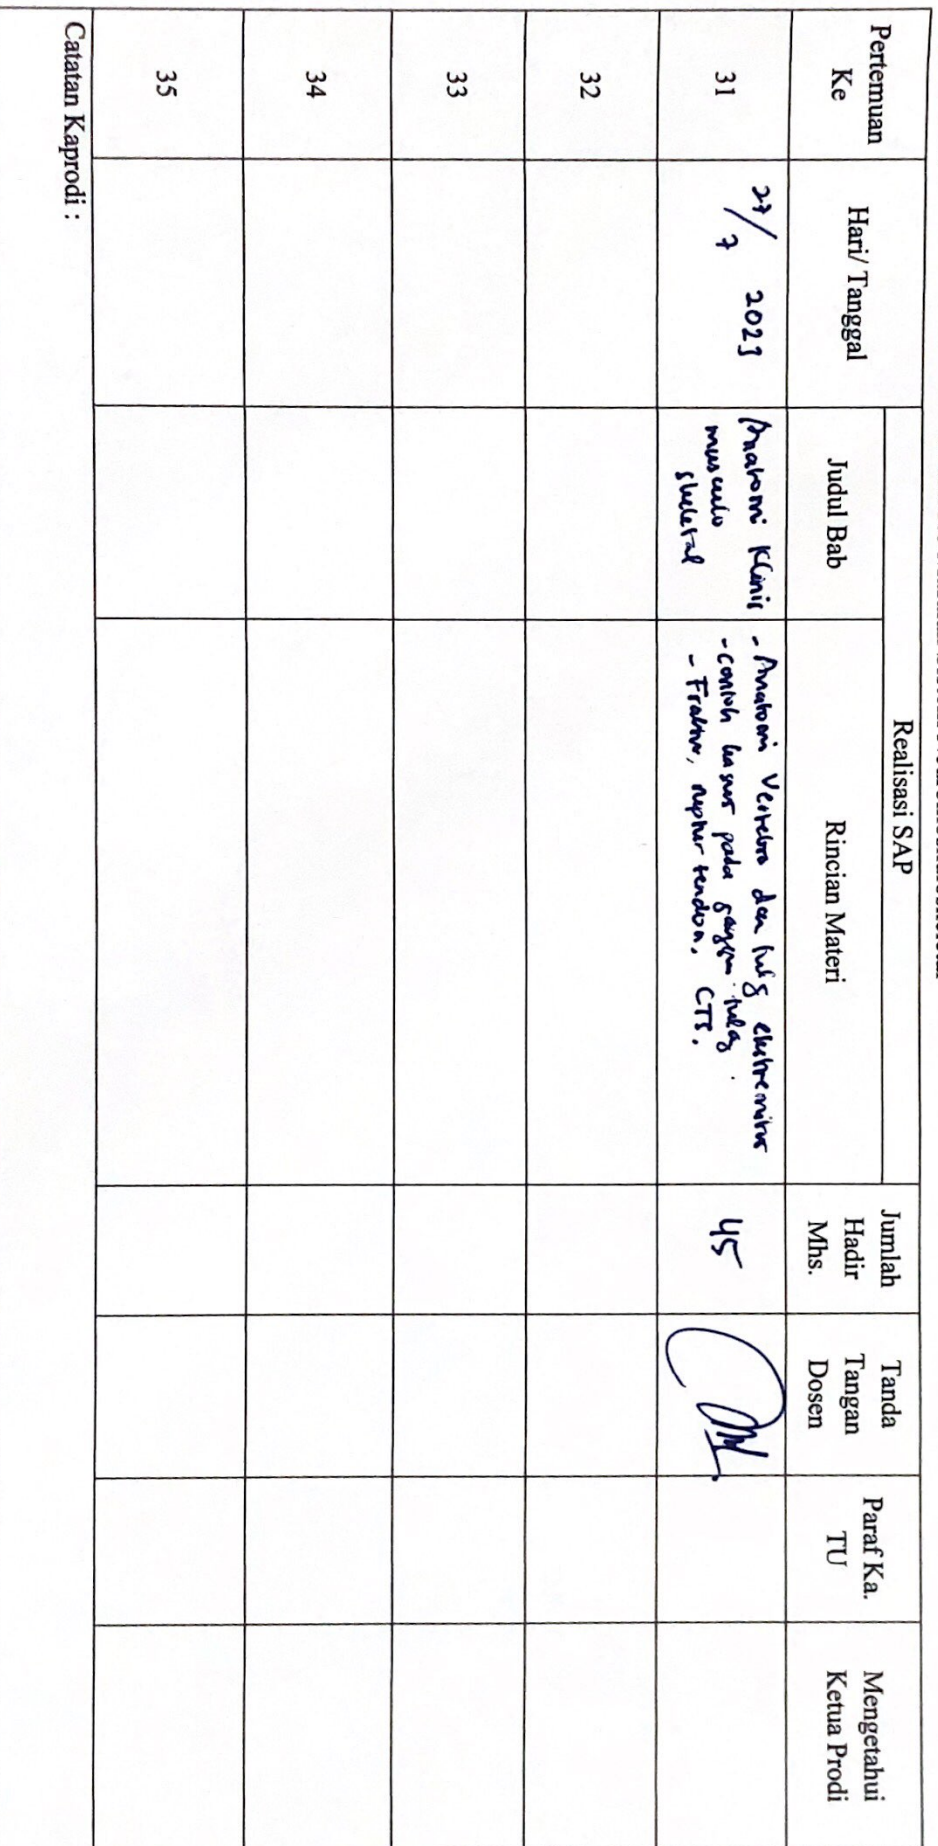 Realisasi SAP
Pertemuan Ke
Hari/ Tanggal
Judul Bab
Rincian Materi
Jumlah Hadir Mhs.
Tanda Tangan Dosen
Paraf Ka. TU
Mengetahui Ketua Prodi
31
27/7 2023
Anatomi Klinis
musculo
skeletal
- Anatomi Vertebra dan tulg ekstremitas
- contoh kasus pada
- Fraktur, ruptur tendon, CTS.
45
32
33
34
35
Catatan Kaprodi :